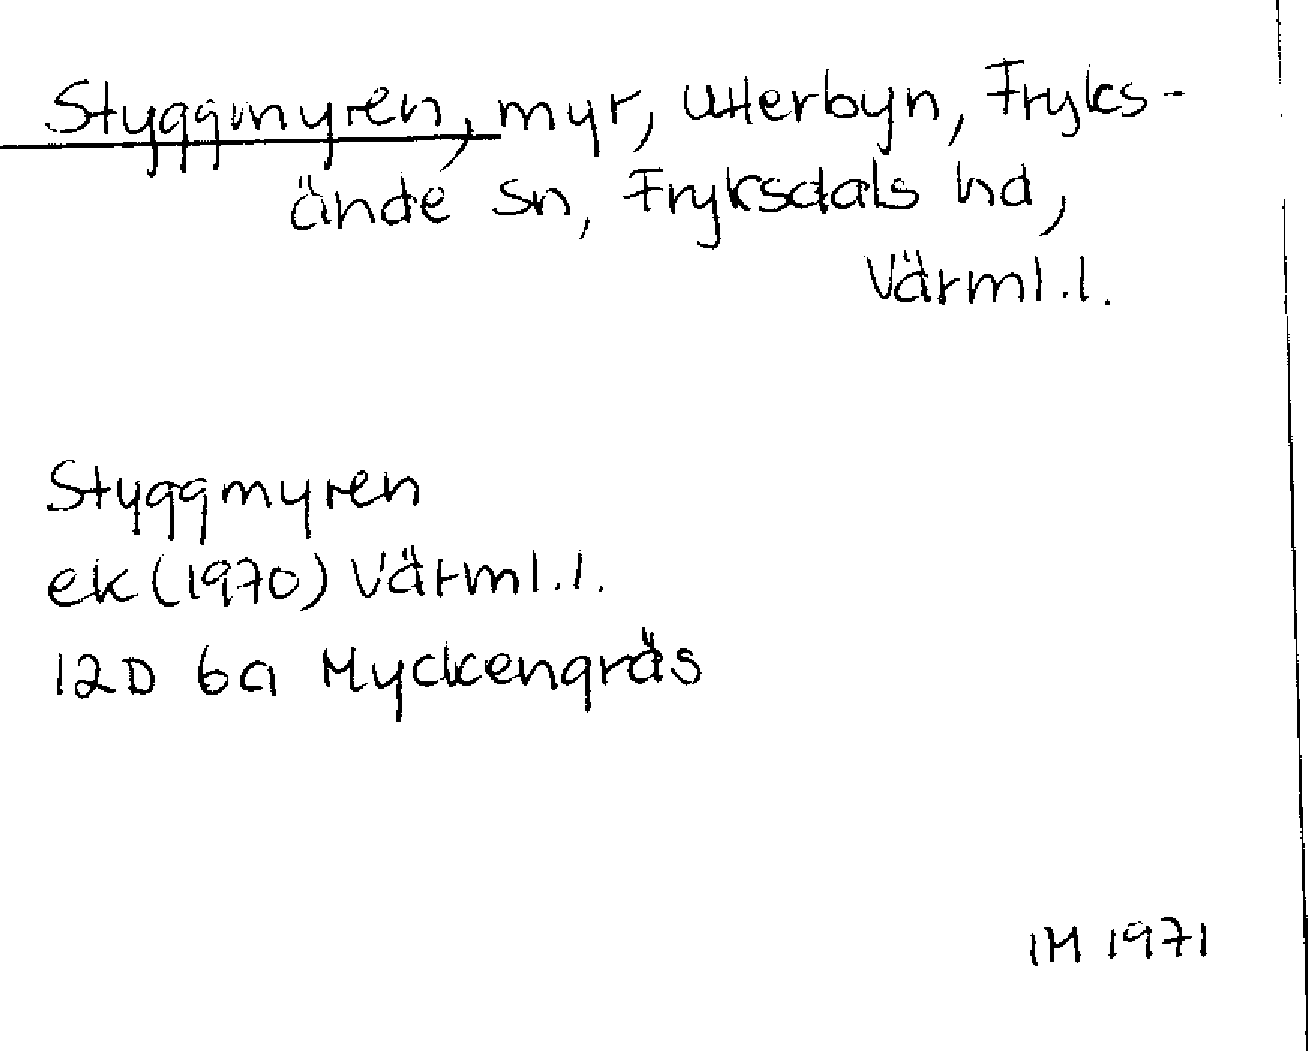 Styggmyren, myr, Utterbyn, Fryks-
ände sn, Fryksdals hd,
Värml.l.
Styggmyren
ek (1970) Värml.l.
12D 6a Myckengräs
IM 1971